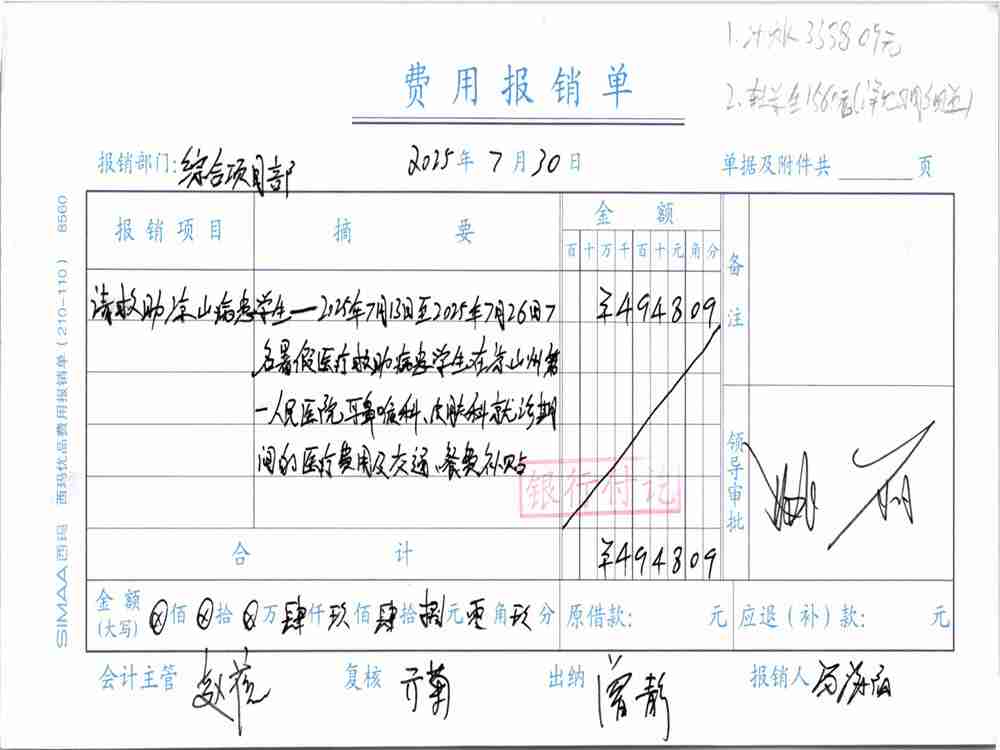 费用报销单
报销部门:综合项目部 2025年7月30日 单据及附件共 页
报销项目 摘要 金额 备注
百十万千百十元角分
请救助凉山病患学生—2025年7月13日至2025年7月26日7 ¥494809
名暑假医疗救助病患学生在凉山州第
一人民医院耳鼻喉科、皮肤科就诊期
间的医疗费用及交通、餐费补贴
银行付讫
领导审批
合计 ¥494809
金额(大写) ⊗佰⊗拾⊗万肆仟玖佰肆拾捌元零角玖分 原借款: 元 应退(补)款: 元
会计主管 复核 出纳 曾静 报销人
SIMAA西玛 西玛优品费用报销单(210-110) 8560